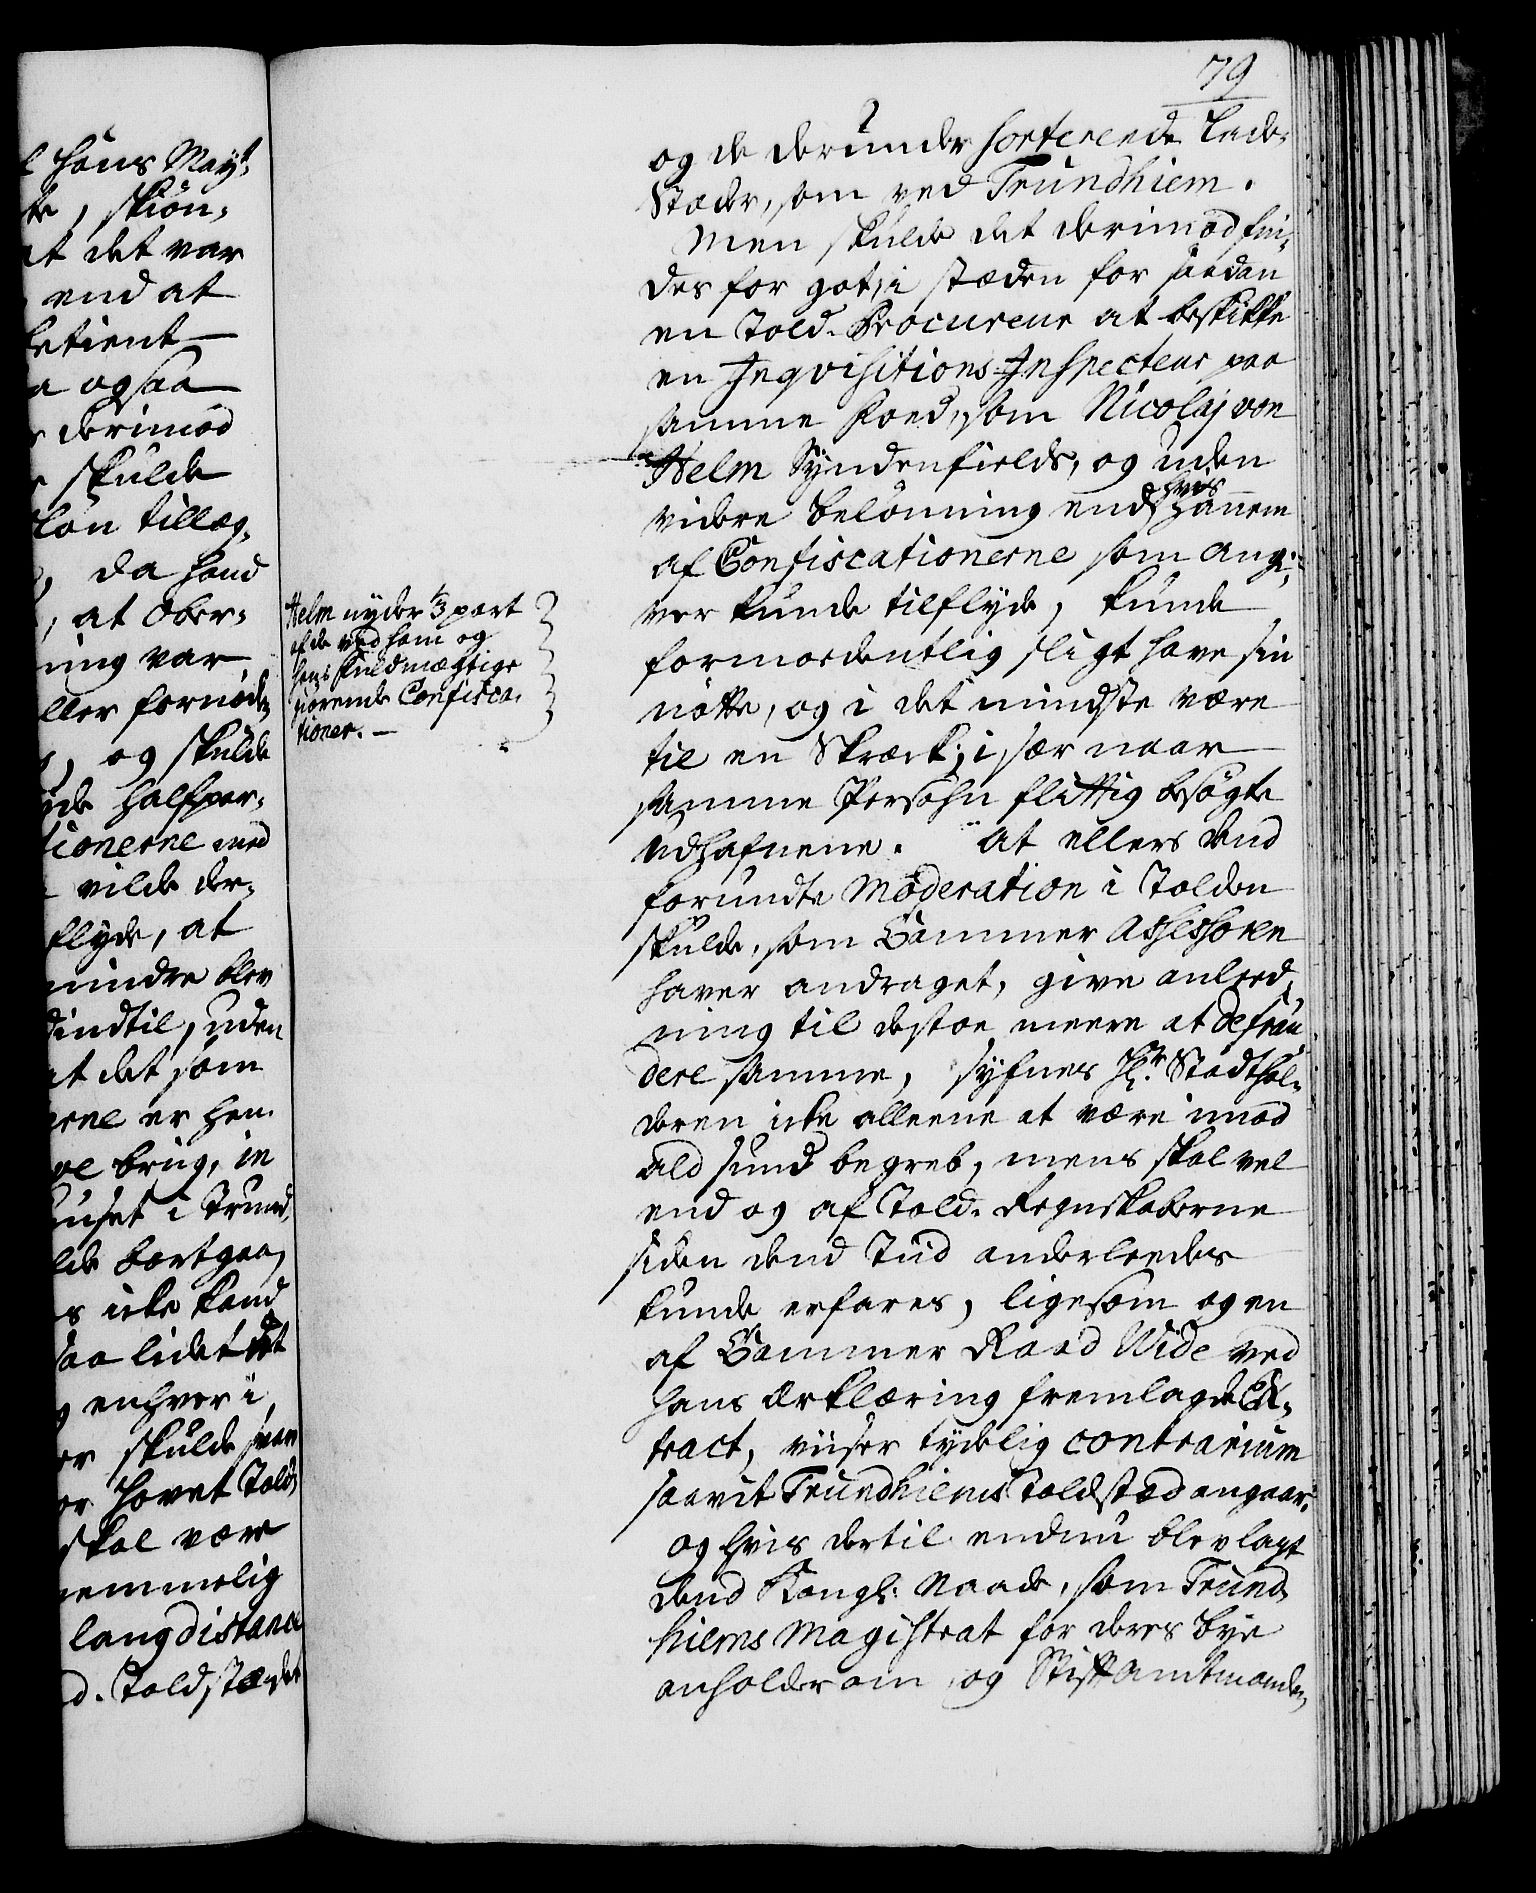 79
og de derunder sorterende Lade-
Stæder, som ved Trundhiem.
Men skulde det derimod fin-
des for got, i stæden for saadan
en Told-Procureur at beskikke
en Inqvisitions-Inspecteur paa
samme Foed, som Nicolaj von
Helm Syndenfields, og uden
videre belønning end hvis hannem
af Confiscationerne som angi-
ver kunde tilflyde, kunde
formodentlig sligt have sin
nøtte, og i det mindste være
til en Skræk, i sær naar
samme Persohn flittig besøgte
Udhafnene. At ellers dend
forundte Moderation i Tolden
skulde, som Cammer Assessoren
haver andraget, give anleed-
ning til destoe meere at defrau-
dere samme, syfnes Hr. Stadthol-
deren icke alleene at være imod
ald sund begreb, mens skal vel
end og af Told-Regnskaberne
siden dend Tiid anderleedes
kunde erfares, ligesom og en
af Cammer Raad Wide ved
hans Erklæring fremlagde Ex-
tract, viiser tydelig contrarium
saavit Trundhiems Toldstæd angaar.
og hvis dertil endnu blev lagt
dend Kongl: Naade, som Trund-
hiems Magistrat for deres bye
anholder om, og Stiftamtmanden,
Helm nyder 1/3 part
af de ved ham og
hans Fuldmægtige
giørende Confisca-
tioner. –
l Hans Mayt:
te, skiøn-
at det var
end at
betient
a ogsaa
derimod
skulde
løn tillæg-
da hand
, at Ober-
ning var
ller fornøden
, og skulde
yde Halfpar-
tionerne med
vilde der-
flyde, at
mindre blev
dindtil, uden
at det som
erne er hen-
ve brug, in
huset i Trund-
lde bortgaa,
s icke kand
saa lidet at
g enhver i
er skulde svare
or Hovet Told-
skal være
nemmelig
lang distance
d. Toldstædet